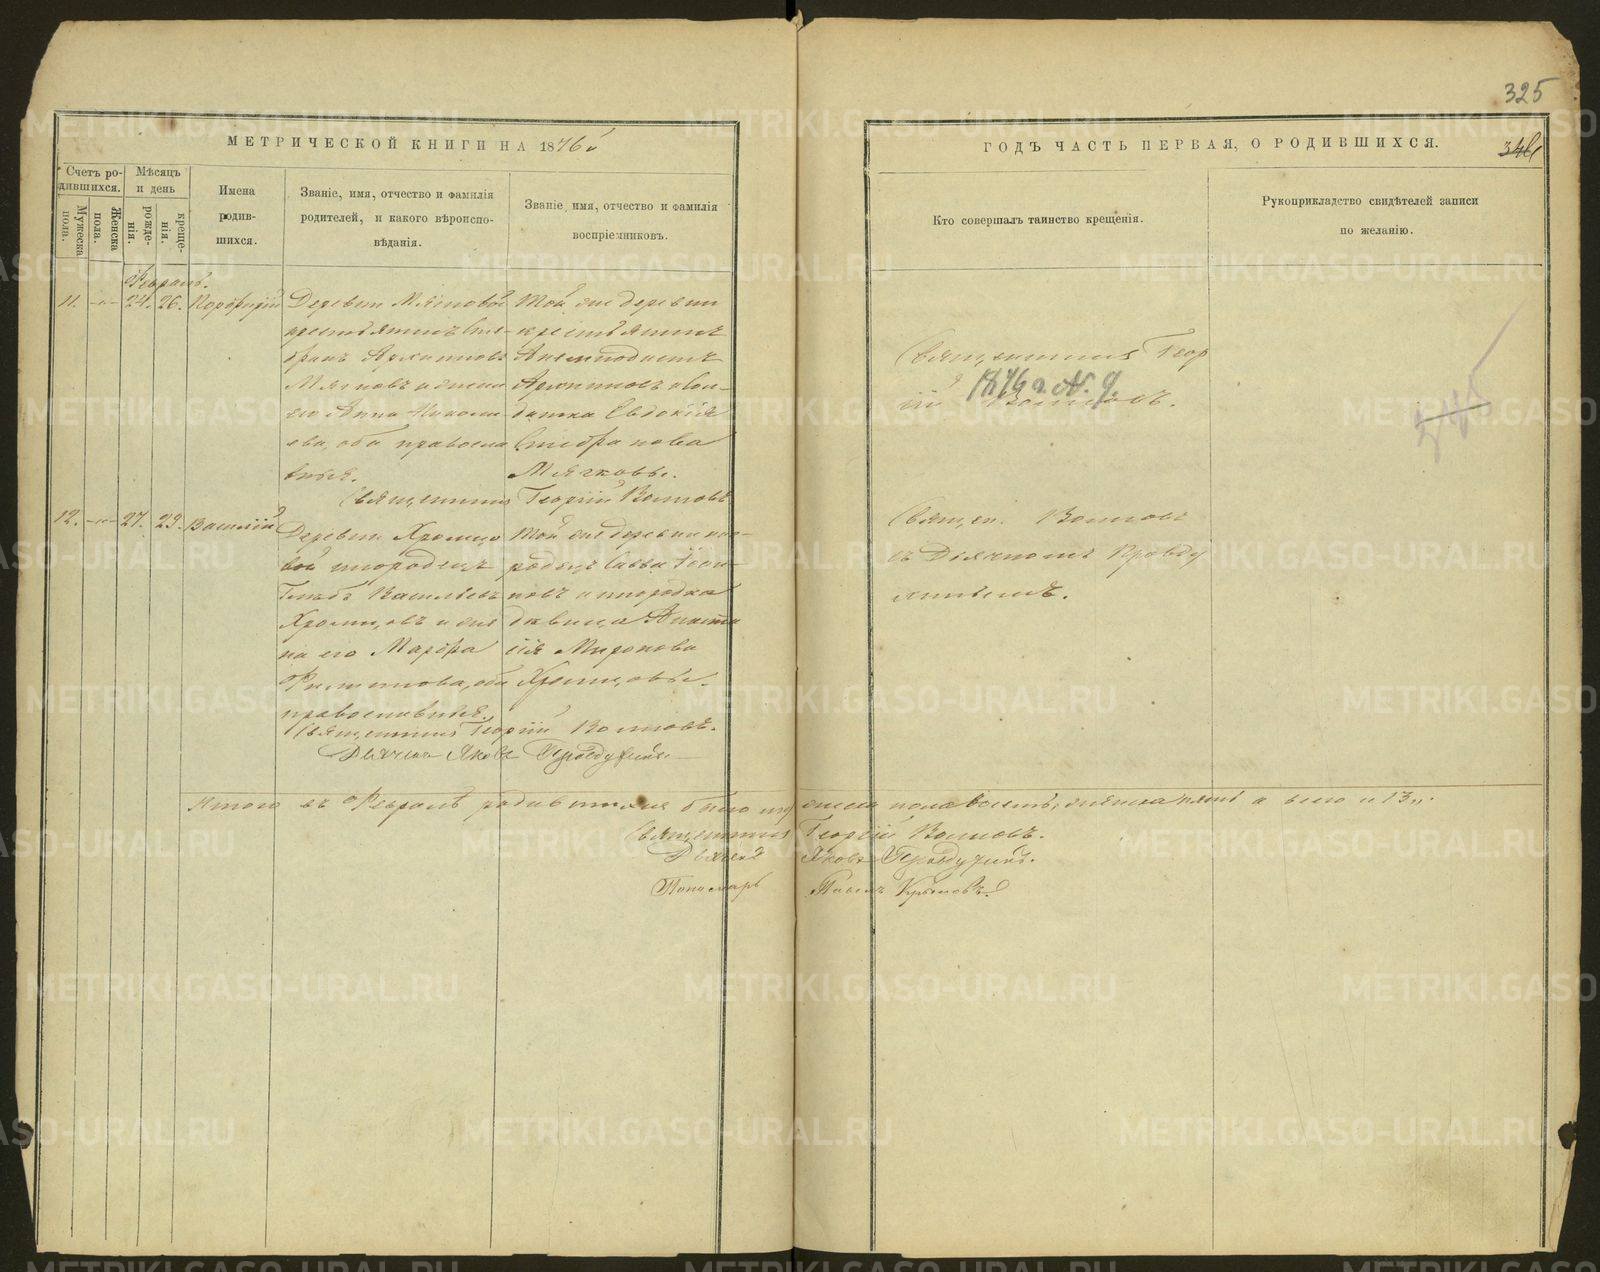 325
МЕТРИЧЕСКОЙ КНИГИ НА 1876й
ГОДЪ ЧАСТЬ ПЕРВАЯ, О РОДИВШИХСЯ.
Счетъ ро-
дившихся.
Мужеска пола.
Женска пола.
Мѣсяцъ
и день
рожде-
нія.
креще-
нія.
Имена
родив-
шихся.
Званіе, имя, отчество и фамилія
родителей, и какого вѣроиспо-
вѣданія.
Званіе, имя, отчество и фамилія
воспріемниковъ.
Кто совершалъ таинство крещенія.
Рукоприкладство свидѣтелей записи
по желанію.
Февраль.
11. —„— 24. 26. Порфирій
Деревни Мягковой
крестьянинъ Сте-
фанъ
Мягковъ и жена
его Анна Никола-
ева, оба православ
ные.
Той же деревни
крестьянинъ
датка Евдокія
Стефанова
Мягковы.
Священникъ Георгій Волковъ
Священникъ Геор
гій Волковъ.
1876 г. № 9.
12. —„— 27. 29. Василій
Деревни Хромцо
вой инородецъ
Глѣбъ Васильевъ
Хромцовъ и же
на его Марфа
Филипова, оба
православные.
Той же деревни ино-
родецъ Савва Іоан-
новъ и инородка
дѣвица Анаста
сія Миронова
Хромцовы.
Священникъ Георгій Волковъ.
Дьячекъ Яковъ
Священ. Волковъ
съ Дьячкомъ
Итого въ Февралѣ родившихся было мужеска пола восемь, женска пять а всего 13.
Священникъ Георгій Волковъ.
Дьячекъ Яковъ
Пономарь Павелъ
METRIKI.GASO-URAL.RU